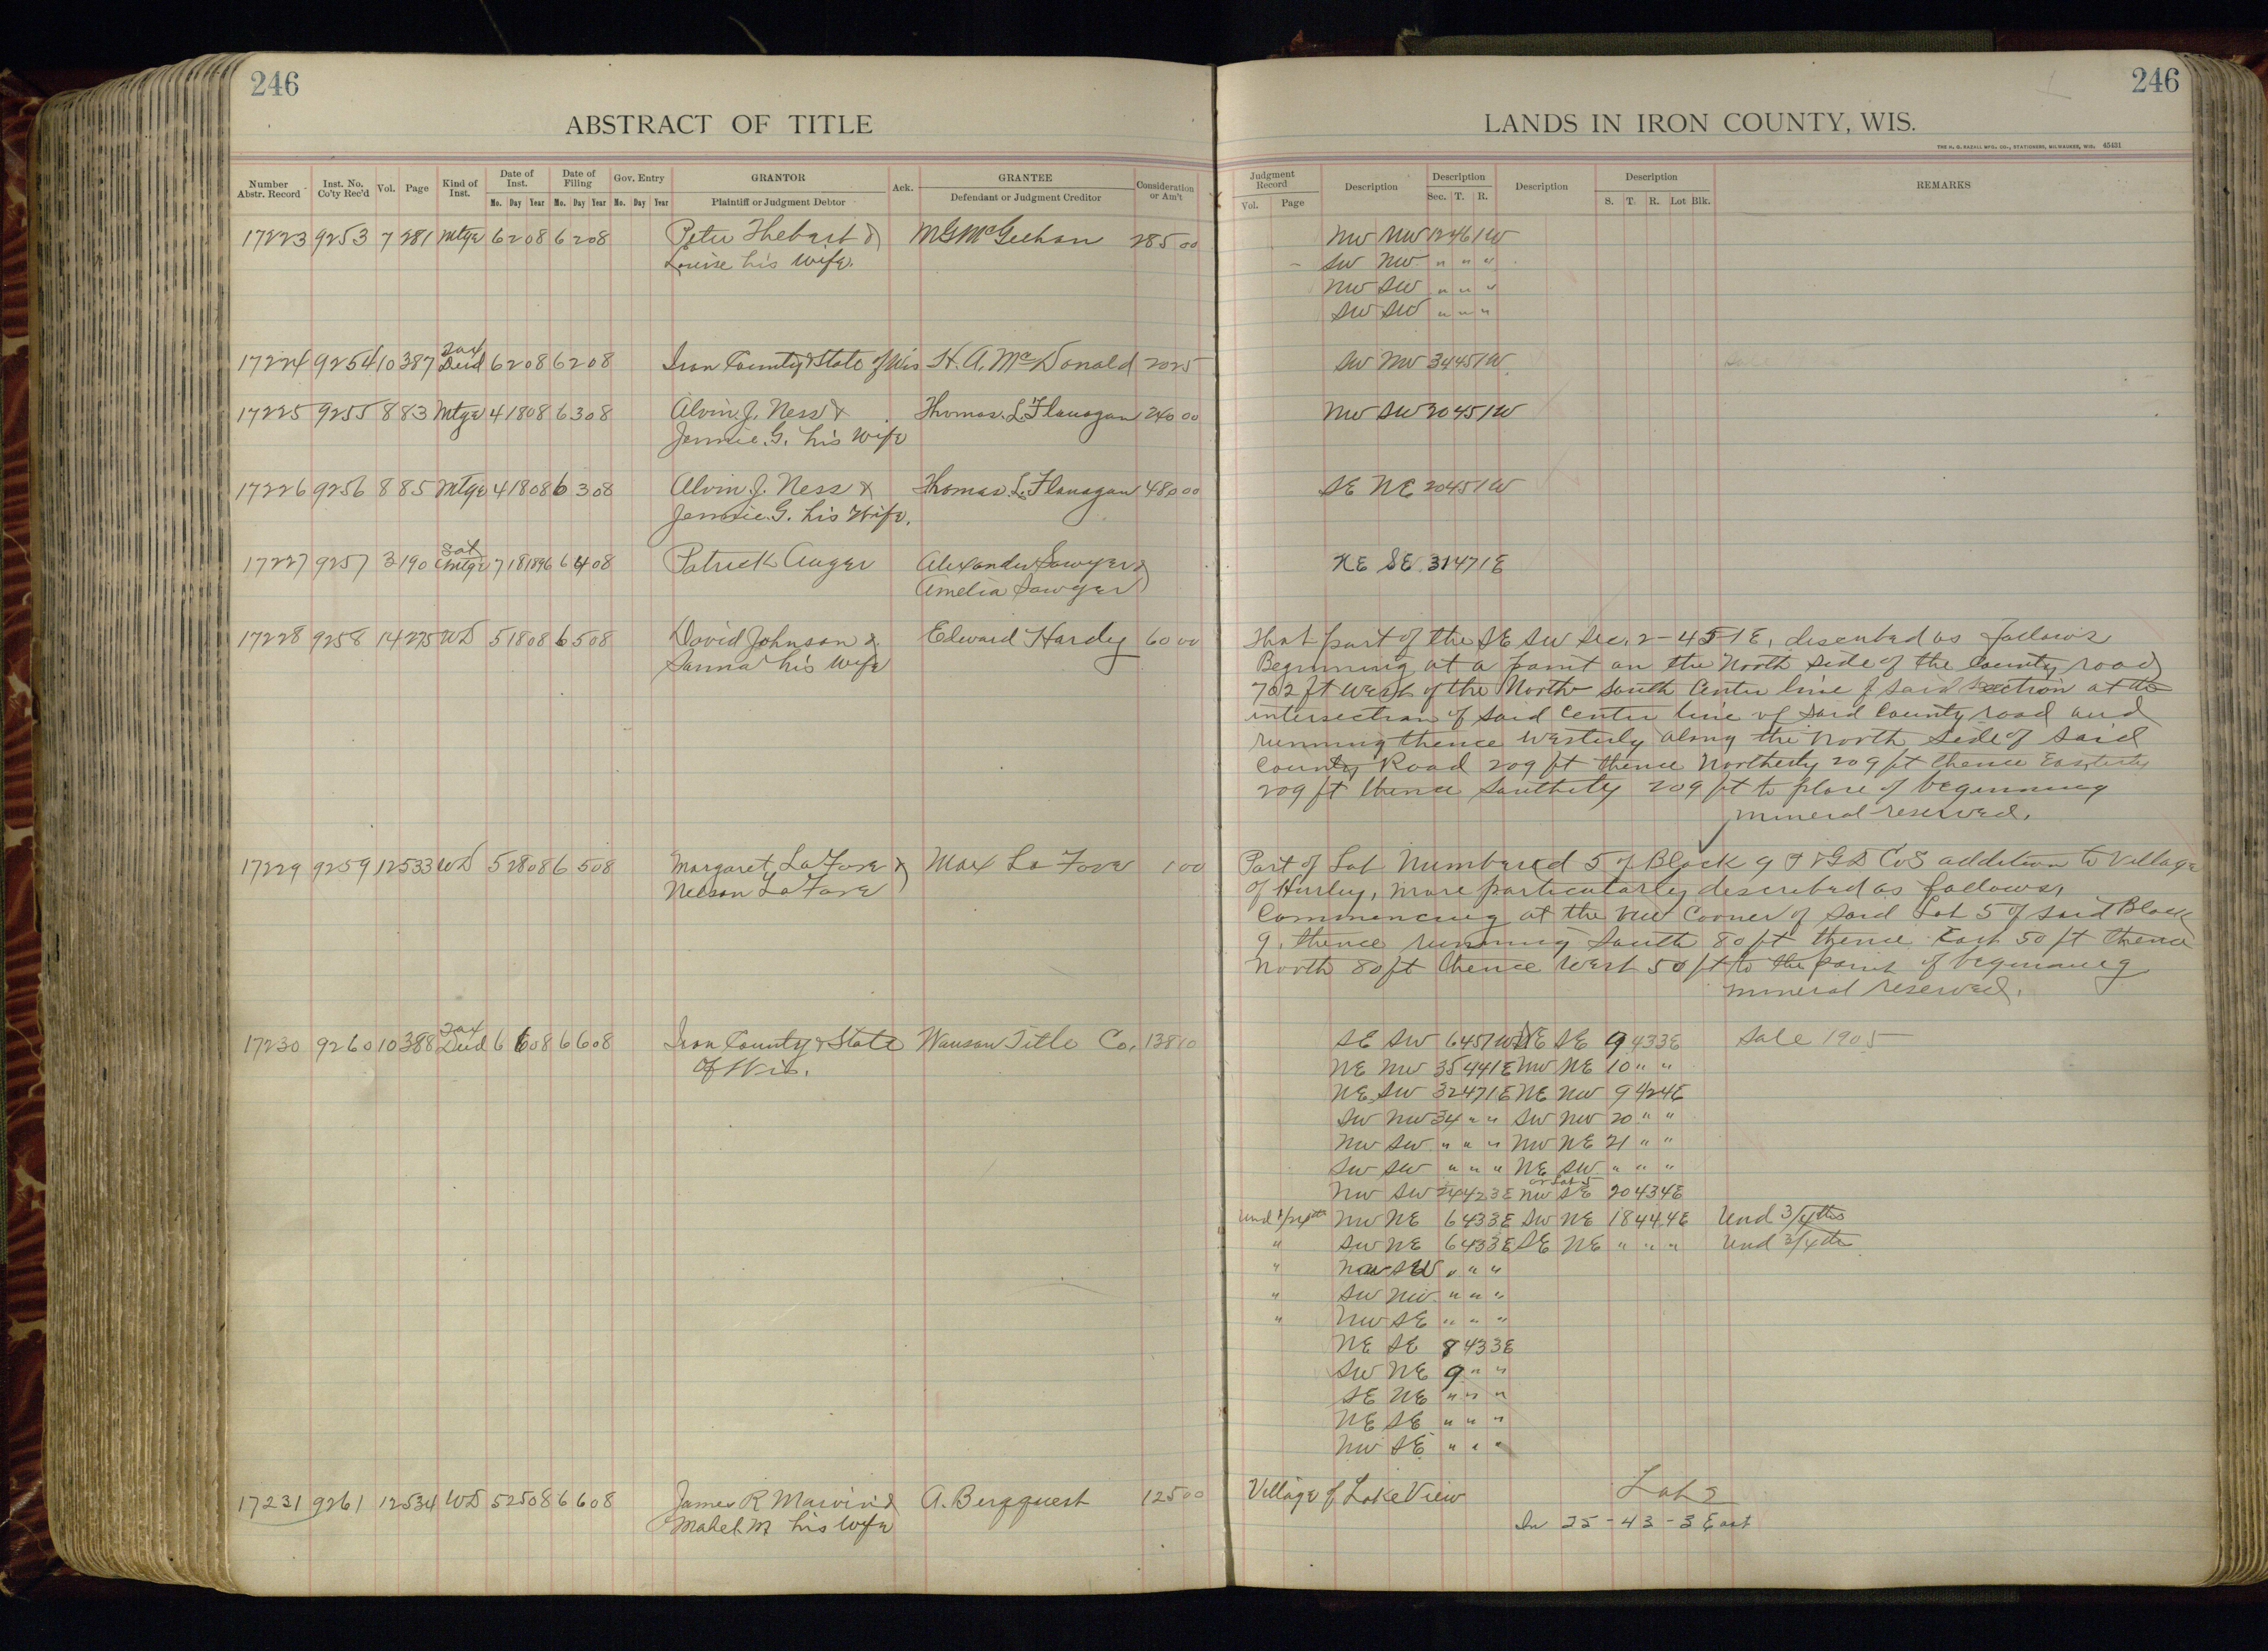 246
ABSTRACT OF TITLE
Number Abstr. Record | Inst. No. Co'ty Rec'd | Vol. | Page | Kind of Inst. | Date of Inst. Mo. Day Year | Date of Filing Mo. Day Year | Gov. Entry Mo. Day Year | GRANTOR Plaintiff or Judgment Debtor | Ack. | GRANTEE Defendant or Judgment Creditor | Consideration or Am't
17223 9253 7 281 Mtge 6 2 08 6 2 08 Peter Thebart & M G McGeehan 285 00
Louise his Wife.
17224 9254 10 387 Tax Deed 6 2 08 6 2 08 Iron County & State of Wis H. A. McDonald 20 25
17225 9255 8 83 Mtge 4 18 08 6 3 08 Alvin J. Ness & Thomas L. Flanagan 240 00
Jennie G. his Wife
17226 9256 8 85 Mtge 4 18 08 6 3 08 Alvin J. Ness & Thomas L. Flanagan 480 00
Jennie G. his Wife.
17227 9257 3 190 Sat Mtge 7 18 1896 6 4 08 Patrick Auger Alexander Sawyer &
Amelia Sawyer
17228 9258 14 275 WD 5 18 08 6 5 08 David Johnson & Edward Hardy 60 00
Sanna his Wife
17229 9259 12 533 WD 5 28 08 6 5 08 Margaret LaFave & Max La Fave 1 00
Nelson LaFave
17230 9260 10 388 Tax Deed 6 6 08 6 6 08 Iron County & State Wausau Title Co. 138 10
Of Wis.
17231 9261 12 534 WD 5 25 08 6 6 08 James R & A. Bergquest 125 00
Mabel M his Wife
246
LANDS IN IRON COUNTY, WIS.
THE H. G. RAZALL MFG. CO., STATIONERS, MILWAUKEE, WIS. 45431
Judgment Record Vol. Page | Description | Description Sec. T. R. | Description | Description S. T. R. Lot Blk. | REMARKS
NW NW 12 46 1W
SW NW " " "
NW SW " " "
SW SW " " "
SW NW 34 45 1W
NW SW 20 45 1W
SE NE 20 45 1W
NE SE 31 47 1E
That part of the SE SW Sec. 2-45 1E, described as follows
Beginning at a point on the North side of the County road
702 ft West of the North South Center line of said Section at the
intersection of said Center line of said County road and
running thence Westerly along the North Side of said
County Road 209 ft thence Northerly 209 ft thence Easterly
209 ft thence Southerly 209 ft to place of beginning
mineral reserved.
Part of Lot Numbered 5 of Block 9 addition to Village
of Hurley, more particularly described as follows,
Commencing at the NW Corner of said Lot 5 of said Block
9. thence running South 80 ft thence East 50 ft thence
North 80 ft thence West 50 ft to the point of beginning
mineral reserved.
SE SW 6 45 1W SE 9 43 3E Sale 1905
NE NW 35 44 1E NW NE 10 " "
NE SW 32 47 1E NE NW 9 42 4E
SW NW 34 " " SW NW 20 " "
NW SW " " " NW NE 21 " "
SW SW " " " NE SW " " "
or Lot 5
NW SW 24 42 3E NW SE 20 43 4E
Und NW NE 6 43 3E SW NE 18 44 4E Und 3/4ths
" SW NE 6 43 3E SE NE " " " Und 3/4ths
" " " "
" SW NW " " "
" NW SE " " "
NE SE 8 43 3E
SW NE 9 " "
SE NE " " "
NE SE " " "
NW SE " " "
Village of Lake View Lot 2
In 25-43-3 East